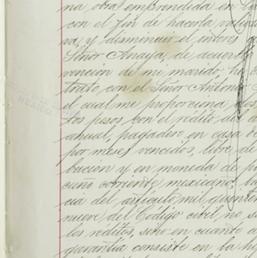 na obra emprendida en la
con el fin de hacerla
va, y disminuir el interes
Señor Anaya, de acuerdo
vencion de mi marido, he
trato con el Señor Antonio
el cual me proporciona dos
tos pesos con el rédito de
anual, pagadero en casa
por meses vencidos, libre de
bucion y en moneda de
cuño corriente mexicano,
cia del artículo mil quinien
nueve del Código civil, no
los réditos, sino en cuanto a
garantía consiste en la hi